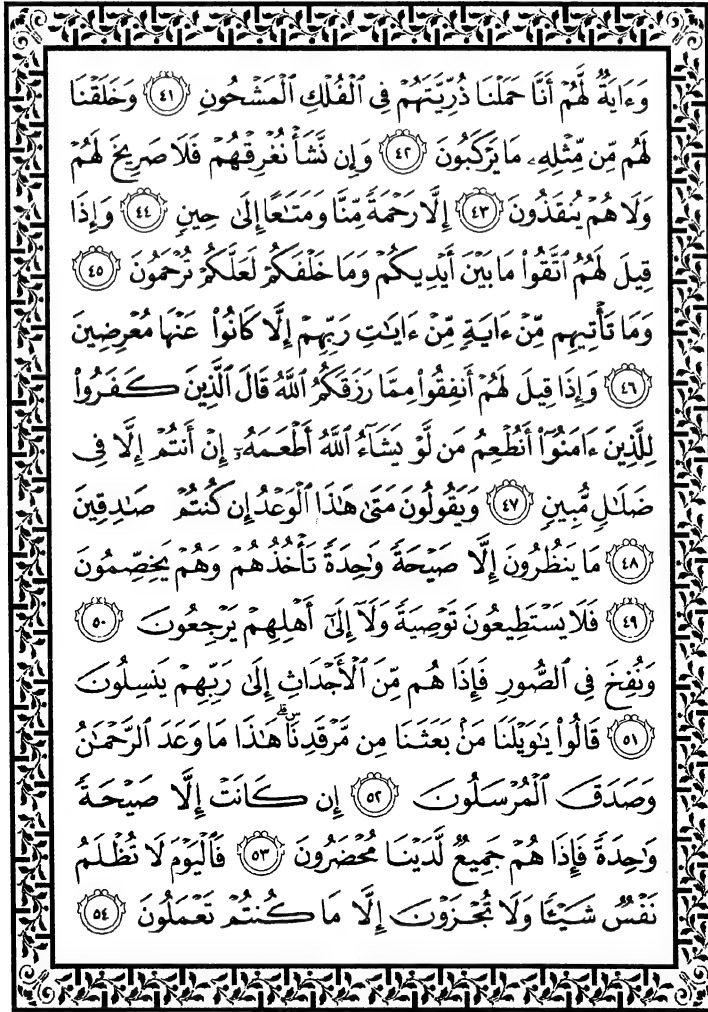 وَءَايَةٌ لَّهُمْ أَنَّا حَمَلْنَا ذُرِّيَّتَهُمْ فِى ٱلْفُلْكِ ٱلْمَشْحُونِ ٤١ وَخَلَقْنَا
لَهُم مِّن مِّثْلِهِۦ مَا يَرْكَبُونَ ٤٢ وَإِن نَّشَأْ نُغْرِقْهُمْ فَلَا صَرِيخَ لَهُمْ
وَلَا هُمْ يُنقَذُونَ ٤٣ إِلَّا رَحْمَةً مِّنَّا وَمَتَٰعًا إِلَىٰ حِينٍ ٤٤ وَإِذَا
قِيلَ لَهُمُ ٱتَّقُوا۟ مَا بَيْنَ أَيْدِيكُمْ وَمَا خَلْفَكُمْ لَعَلَّكُمْ تُرْحَمُونَ ٤٥
وَمَا تَأْتِيهِم مِّنْ ءَايَةٍ مِّنْ ءَايَٰتِ رَبِّهِمْ إِلَّا كَانُوا۟ عَنْهَا مُعْرِضِينَ
٤٦ وَإِذَا قِيلَ لَهُمْ أَنفِقُوا۟ مِمَّا رَزَقَكُمُ ٱللَّهُ قَالَ ٱلَّذِينَ كَفَرُوا۟
لِلَّذِينَ ءَامَنُوٓا۟ أَنُطْعِمُ مَن لَّوْ يَشَآءُ ٱللَّهُ أَطْعَمَهُۥٓ إِنْ أَنتُمْ إِلَّا فِى
ضَلَٰلٍ مُّبِينٍ ٤٧ وَيَقُولُونَ مَتَىٰ هَٰذَا ٱلْوَعْدُ إِن كُنتُمْ صَٰدِقِينَ
٤٨ مَا يَنظُرُونَ إِلَّا صَيْحَةً وَٰحِدَةً تَأْخُذُهُمْ وَهُمْ يَخِصِّمُونَ
٤٩ فَلَا يَسْتَطِيعُونَ تَوْصِيَةً وَلَآ إِلَىٰٓ أَهْلِهِمْ يَرْجِعُونَ ٥٠
وَنُفِخَ فِى ٱلصُّورِ فَإِذَا هُم مِّنَ ٱلْأَجْدَاثِ إِلَىٰ رَبِّهِمْ يَنسِلُونَ
٥١ قَالُوا۟ يَٰوَيْلَنَا مَنۢ بَعَثَنَا مِن مَّرْقَدِنَا ۜ ۗ هَٰذَا مَا وَعَدَ ٱلرَّحْمَٰنُ
وَصَدَقَ ٱلْمُرْسَلُونَ ٥٢ إِن كَانَتْ إِلَّا صَيْحَةً
وَٰحِدَةً فَإِذَا هُمْ جَمِيعٌ لَّدَيْنَا مُحْضَرُونَ ٥٣ فَٱلْيَوْمَ لَا تُظْلَمُ
نَفْسٌ شَيْـًٔا وَلَا تُجْزَوْنَ إِلَّا مَا كُنتُمْ تَعْمَلُونَ ٥٤